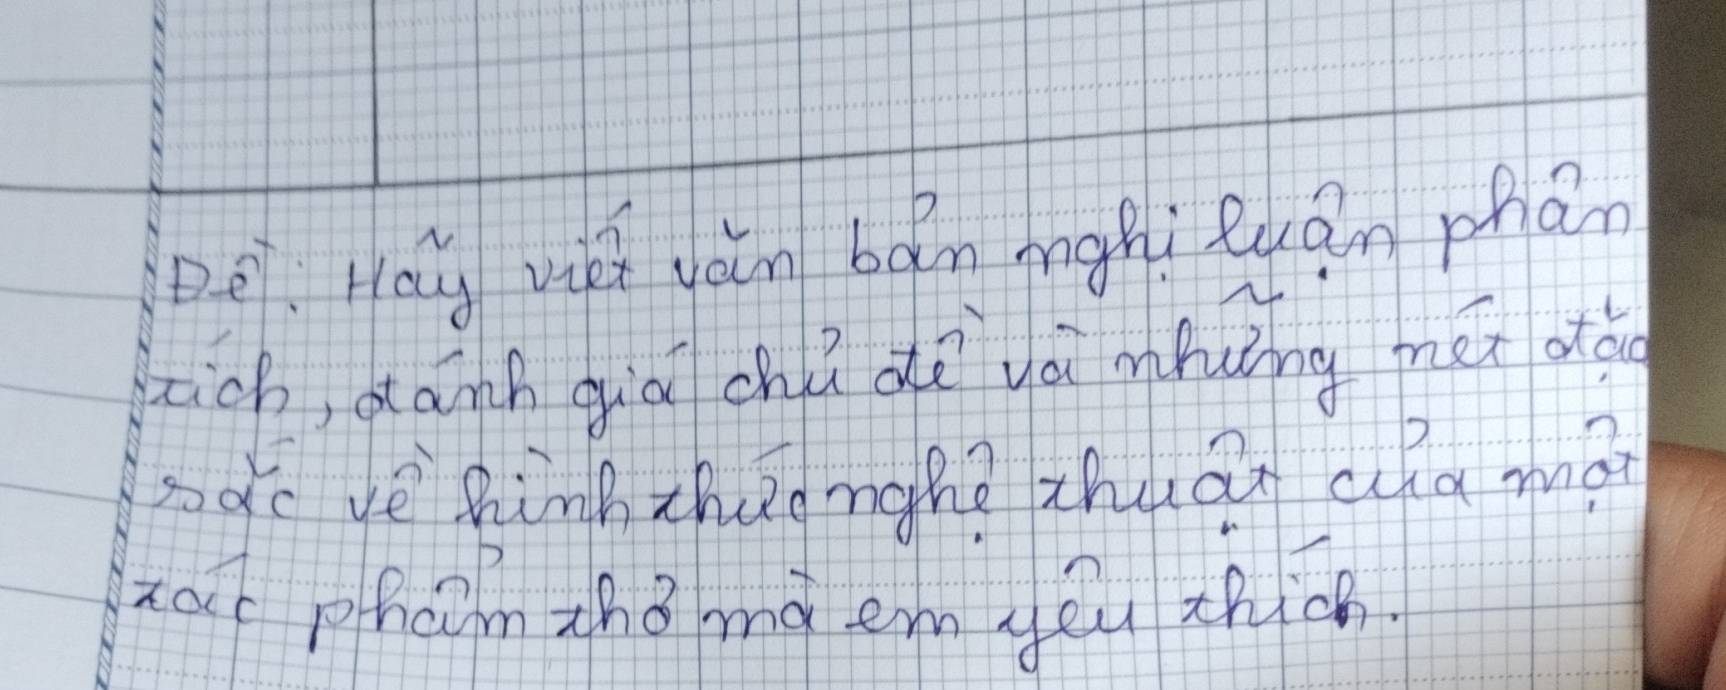 Đề: Hãy viết văn bản nghị luận phân
tích, đánh giá chủ đề và những nét đặc
sắc về hình thức nghệ thuật của một
tác phẩm thơ mà em yêu thích.